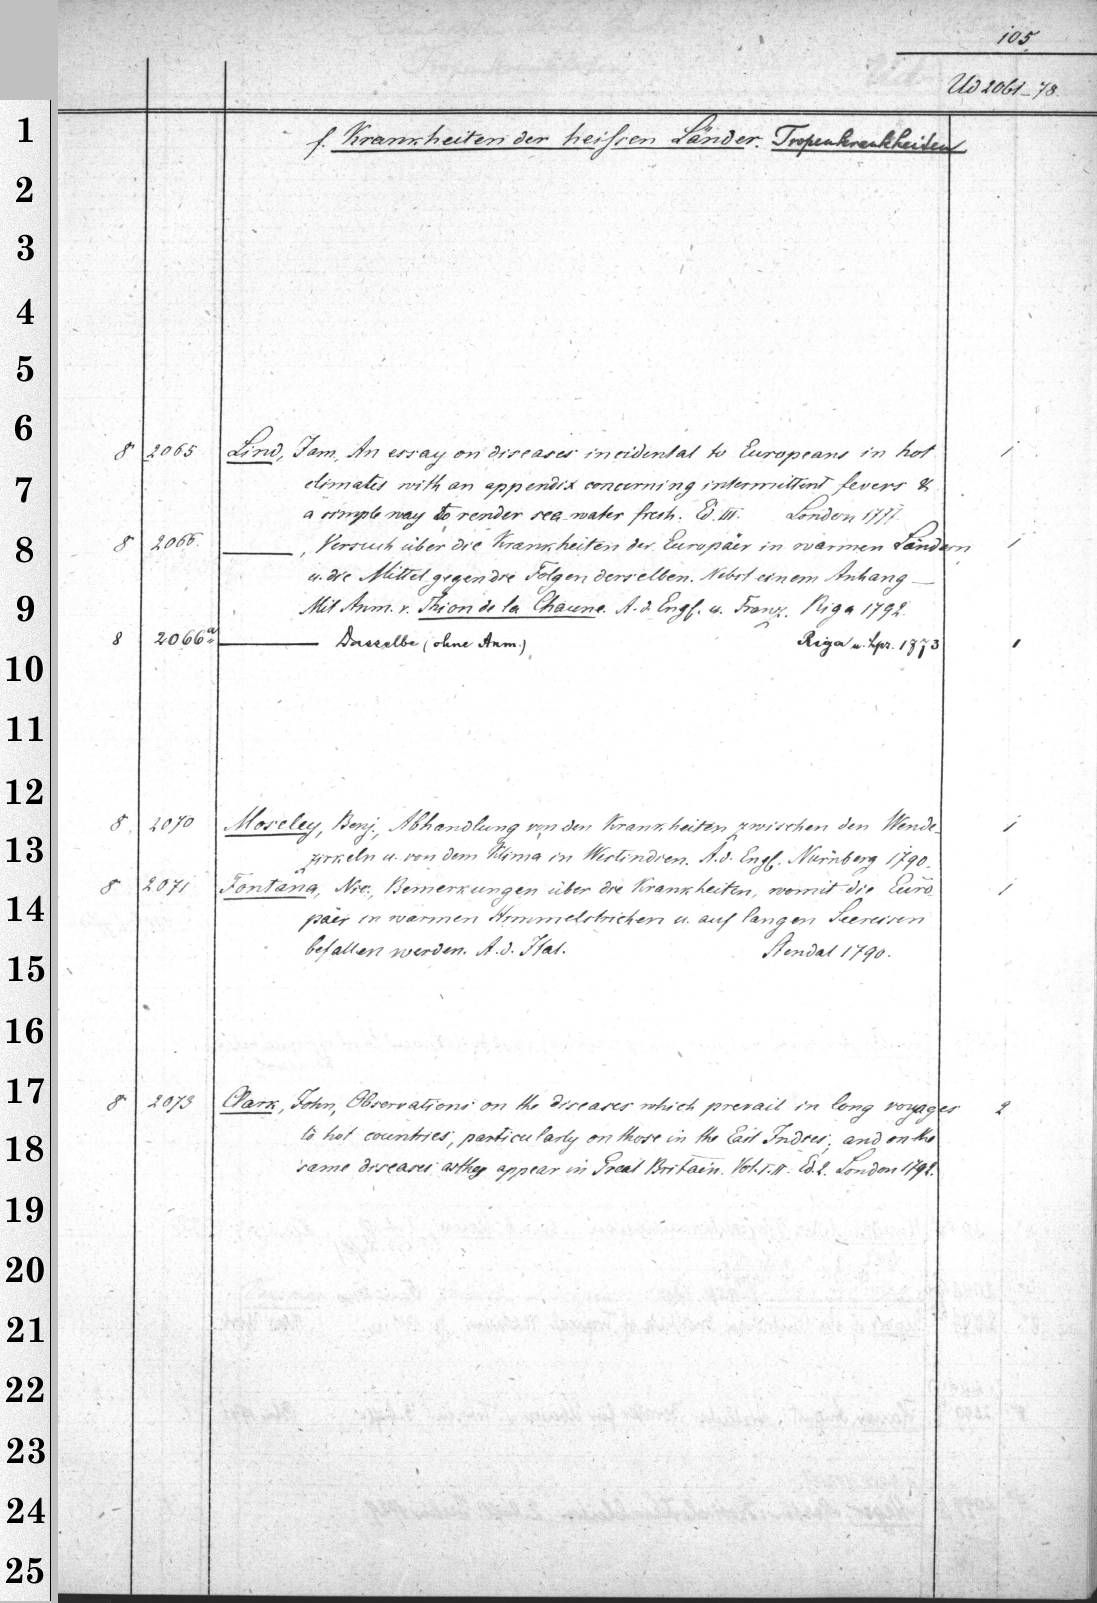 105
Ud 2061-78.
1
f. Krankheiten der heissen Länder. Tropenkrankheiten
2
3
4
5
6
8 2065 Lind, Jam. An essay on diseases incidental to Europeans in hot 1
7
climates with an appendix concerning intermittent fevers &
a simple way to render sea water fresh. Ed. III. London 1777.
8
8 2066. ———, Versuch über die Krankheiten der Europäer in warmen Ländern 1
u. die Mittel gegen die Folgen derselben. Nebst einem Anhang —
9
Mit Anm. v. Thion de la Chaume. A. d. Engl. u. Franz. Riga 1792.
8 2066a ——— Dasselbe (ohne Anm.) Riga u. Lpz. 1773 1
10
11
12
8. 2070 Moseley, Benj., Abhandlung von den Krankheiten zwischen den Wende- 1
13
zirkeln u. von dem Klima in Westindien. A. d. Engl. Nürnberg 1790.
8 2071 Fontana, Nic., Bemerkungen über die Krankheiten, womit die Euro- 1
14
päer in warmen Himmelstrichen u. auf langen Seereisen
befallen werden. A. d. Ital. Stendal 1790.
15
16
17
8 2073 Clark, John, Observations on the diseases which prevail in long voyages 2
18
to hot countries, particularly on those in the East Indies; and on the
same diseases as they appear in Great Britain. Vol. I. II. Ed. 2. London 1792.
19
20
21
22
23
24
25